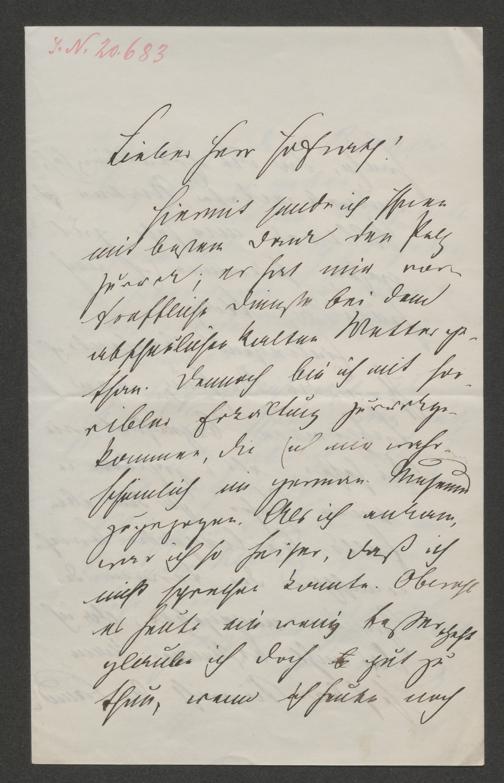 I. N. 20.683
Lieber Herr Hofrath!
Hiermit sende ich Ihnen
mit bestem Dank den Pelz
zurück; er hat mir vor-
treffliche Dienste bei dem
abscheulichen kalten Wetter ge-
than. Dennoch bin ich mit hor-
ribler Erkältung zurückge-
kommen, die ich mir wahr-
scheinlich im german. Museum
zugezogen. Als ich ankam,
war ich so heiser, daß ich
nicht sprechen konnte. Obwohl
es heute ein wenig besser geht
glaube ich doch gut zu
thun, wenn ich heute noch